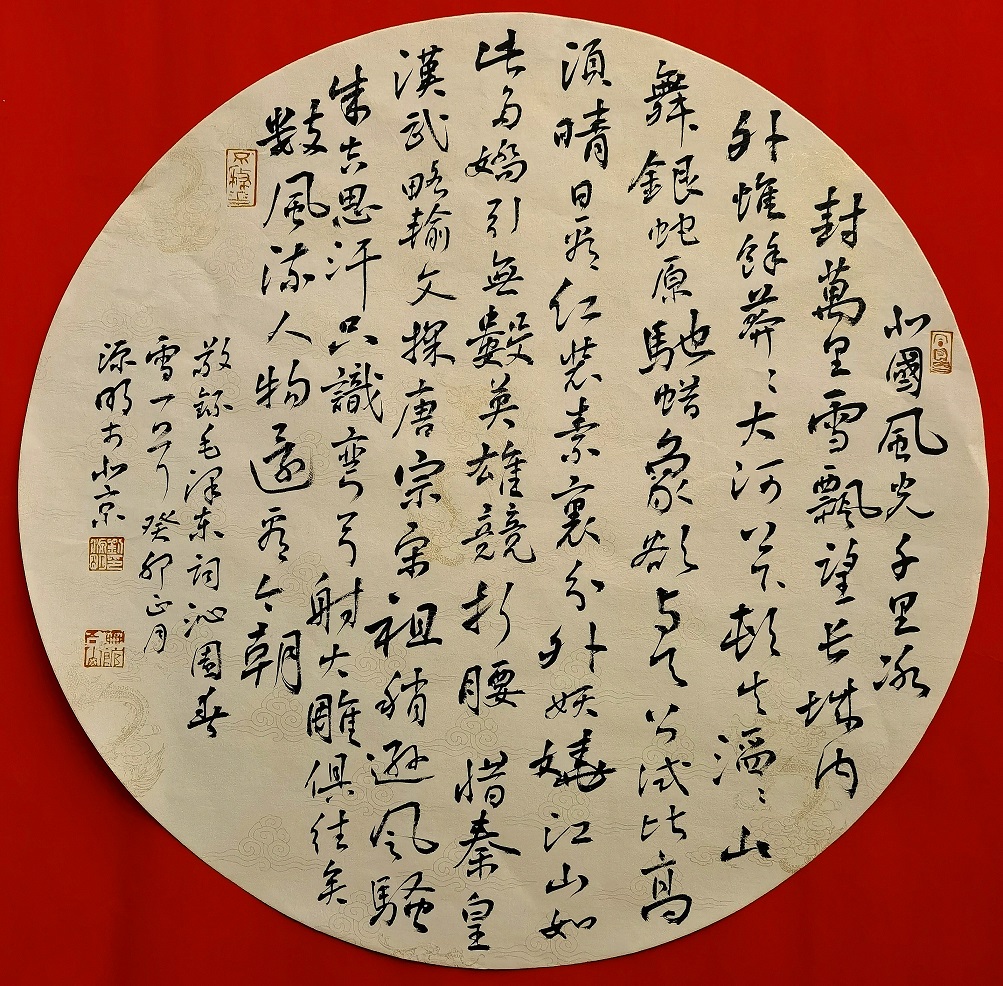 北國風光千里冰
封萬里雪飄望長城内
外惟餘莽〻大河上下頓失滔〻山
舞銀蛇原馳蜡象欲與天公試比高
須晴日看红裝素裹分外妖嬈江山如
此多嬌引無數英雄競折腰惜秦皇
漢武略輸文採唐宗宋祖稍遜風騷
成吉思汗只識彎弓射大雕俱往矣
數風流人物還看今朝
敬録毛澤東詞沁園春
雪一首癸卯正月
源明於北京